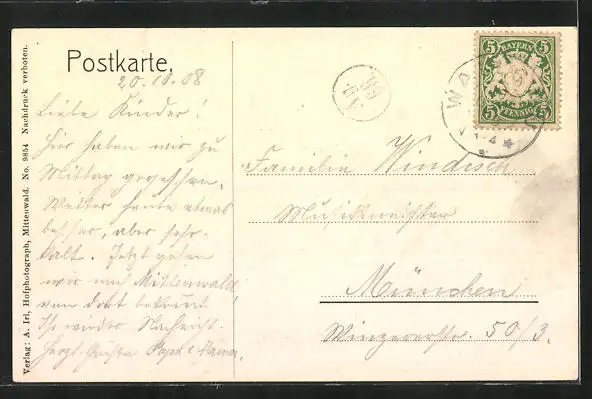 Postkarte.
20.10.08
Liebe Kinder!
Hier haben wir zu
Mittag gegessen.
Wetter heute etwas
besser, aber sehr
kalt. Jetzt gehen
wir nach Mittenwald,
von dort bekommt
Ihr wieder Nachricht.
Herzl. Grüsse Papa & Mama.
Verlag: A. Irl, Hofphotograph, Mittenwald. No. 9854 Nachdruck verboten.
5 BAYERN 5
5 PFENNIG 5
WA
Familie Windisch
Musikmeister
München
Winzererstr. 50/3.